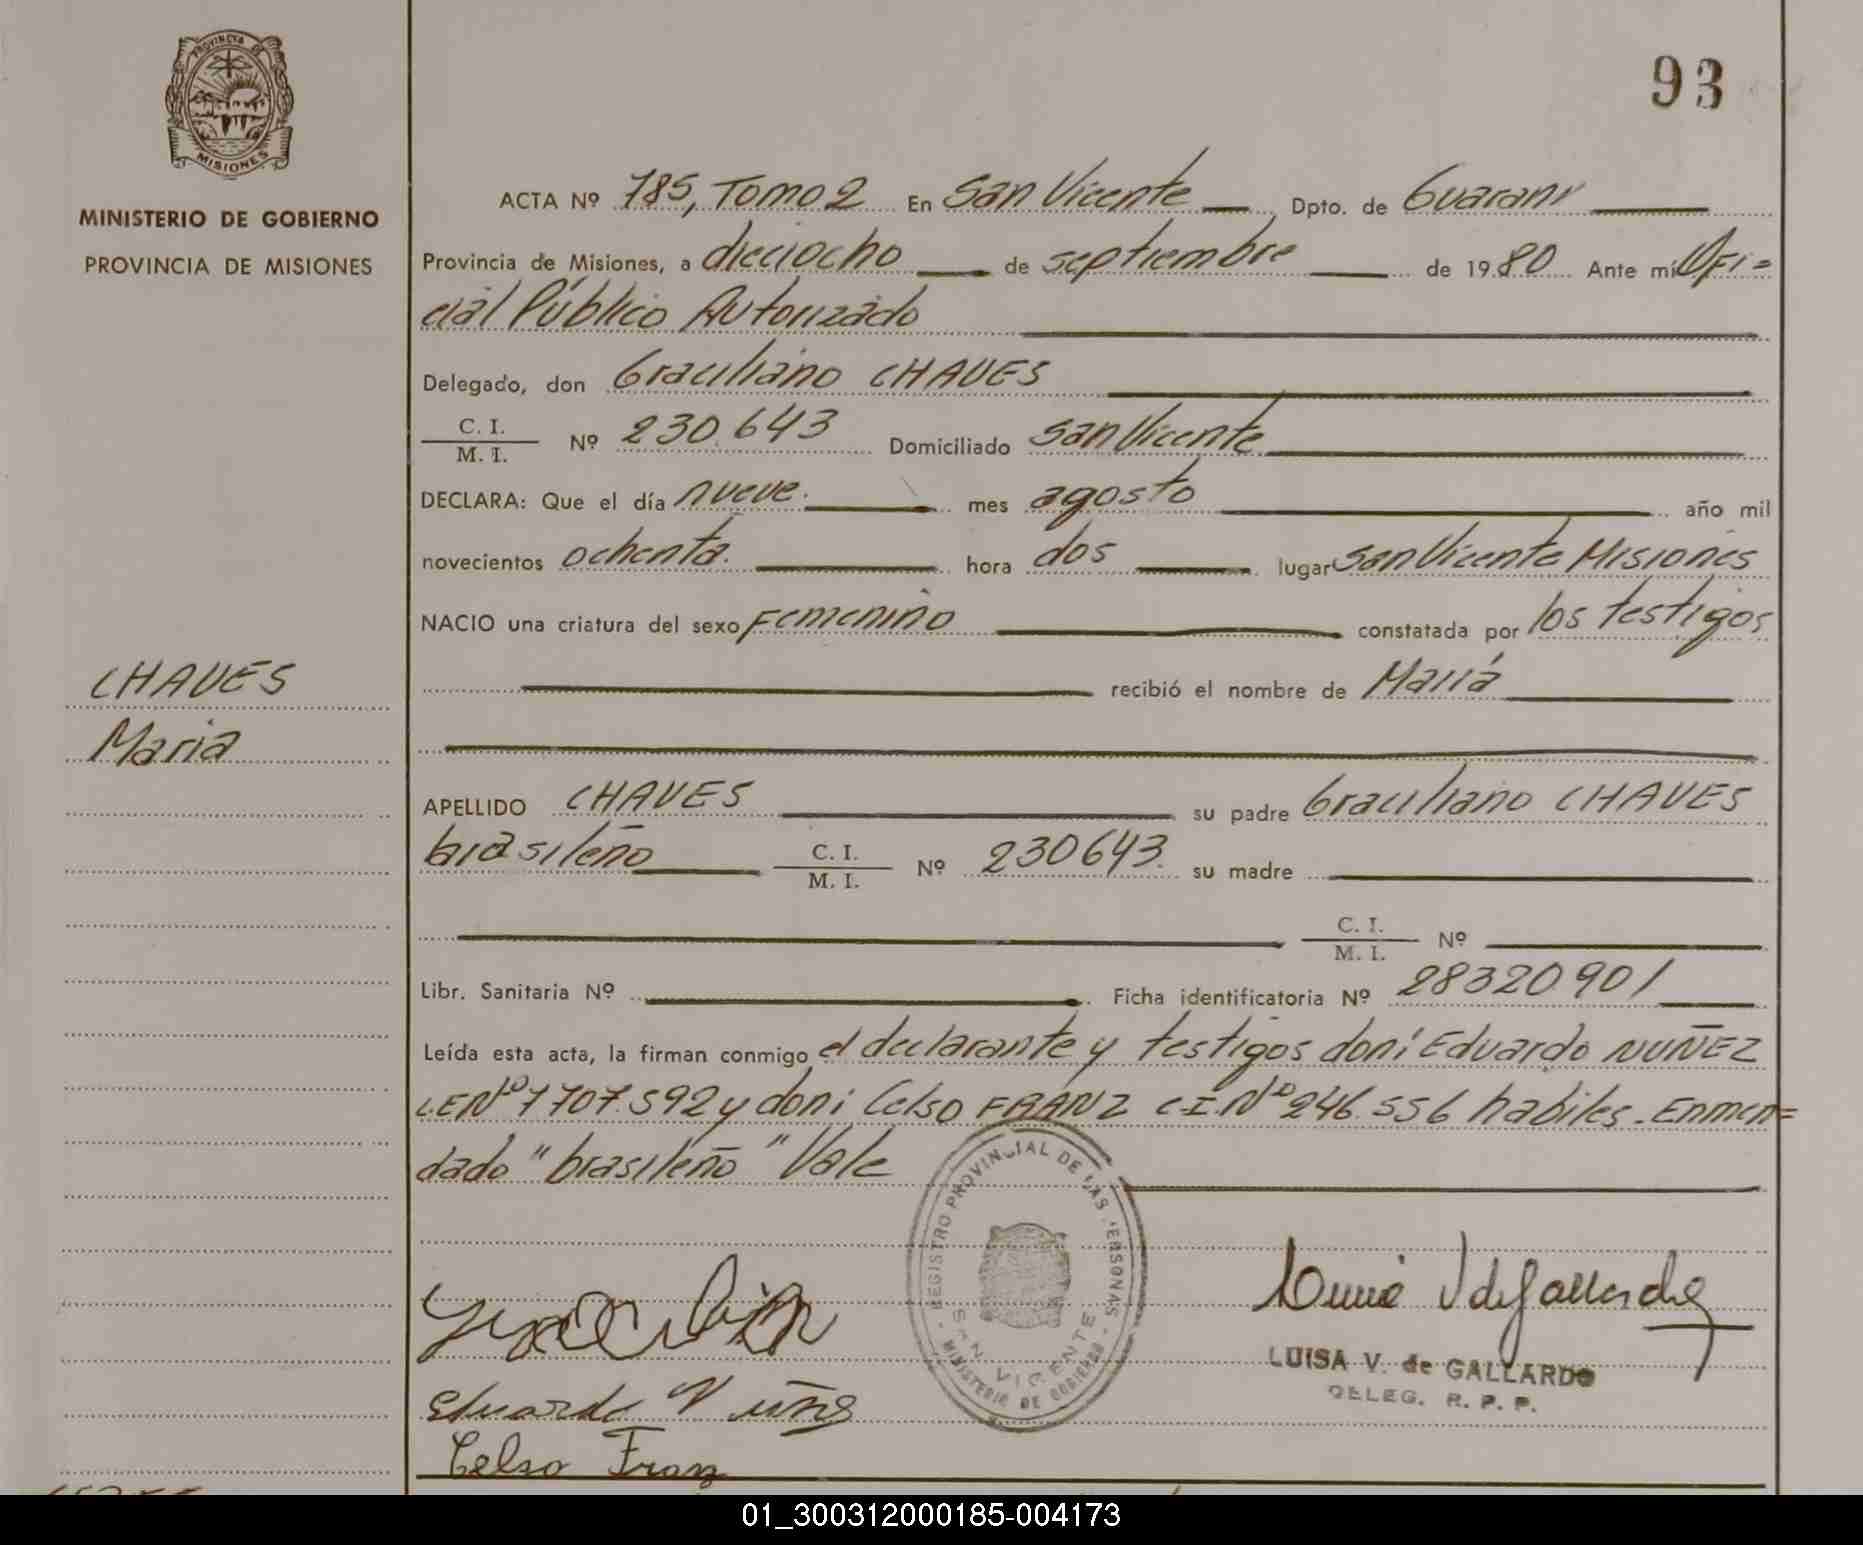 PROVINCIA DE
MISIONES
MINISTERIO DE GOBIERNO
PROVINCIA DE MISIONES
93
ACTA Nº 785, Tomo 2 En San Vicente Dpto. de Guaraní
Provincia de Misiones, a dieciocho de septiembre de 1980 Ante mí Ofi=
cial Público Autorizado
Delegado, don Graciliano CHAVES
C. I.
M. I. Nº 230.643 Domiciliado San Vicente
DECLARA: Que el día nueve. mes agosto año mil
novecientos ochenta. hora dos lugar San Vicente Misiones
NACIO una criatura del sexo Femenino constatada por los testigos
recibió el nombre de María
CHAVES
Maria
APELLIDO CHAVES su padre Graciliano CHAVES
brasileño C. I.
M. I. Nº 230643. su madre
C. I.
M. I. Nº
Libr. Sanitaria Nº Ficha identificatoria Nº 28320901
Leída esta acta, la firman conmigo el declarante y testigos don: Eduardo NUÑEZ
L.E Nº 7707.592 y don: Celso FRANZ C.I. Nº 246.556 habiles. Enmen=
dado "brasileño" Vale
REGISTRO PROVINCIAL DE LAS PERSONAS
SAN VICENTE
MINISTERIO DE GOBIERNO
LUISA V. de GALLARDO
DELEG. R. P. P.
Eduardo Nuñez
Celso Franz
01_300312000185-004173